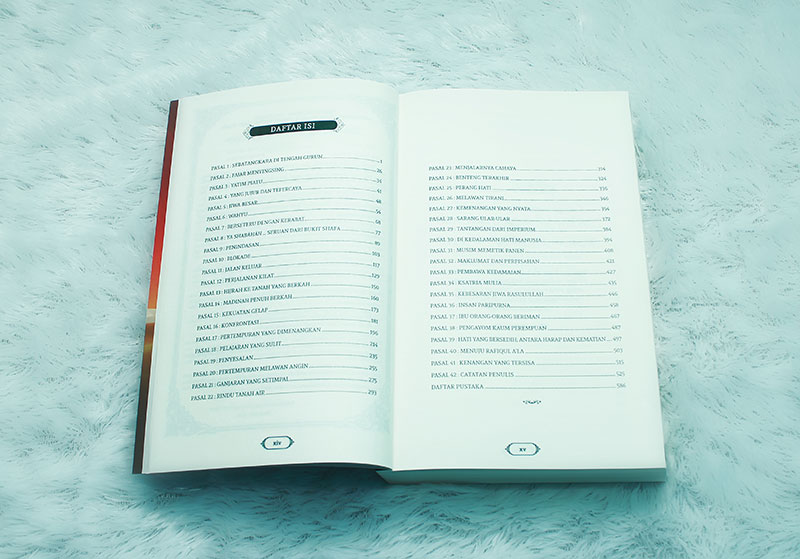 DAFTAR ISI
PASAL 1 : SEBATANGKARA DI TENGAH GURUN 1
PASAL 2 : FAJAR MENYINGSING 26
PASAL 3 : YATIM PIATU
PASAL 4 : YANG JUJUR DAN TEPERCAYA 41
PASAL 5 : JIWA BESAR 48
PASAL 6 : WAHYU 56
PASAL 7 : BERSETERU DENGAN KERABAT 68
PASAL 8 : YA SHABAHAH ... SERUAN DARI BUKIT SHAFA 77
PASAL 9 : PENINDASAN 89
PASAL 10 : BLOKADE 103
PASAL 11 : JALAN KELUAR 117
PASAL 12 : PERJALANAN KILAT 129
PASAL 13 : HIJRAH KE TANAH YANG BERKAH 150
PASAL 14 : MADINAH PENUH BERKAH 160
PASAL 15 : KEKUATAN GELAP 173
PASAL 16 : KONFRONTASI 181
PASAL 17 : PERTEMPURAN YANG DIMENANGKAN 196
PASAL 18 : PELAJARAN YANG SULIT 214
PASAL 19 : PENYESALAN 235
PASAL 20 : PERTEMPURAN MELAWAN ANGIN 255
PASAL 21 : GANJARAN YANG SETIMPAL 275
PASAL 22 : RINDU TANAH AIR 293
xiv
PASAL 23 : MENJALARNYA CAHAYA 314
PASAL 24 : BENTENG TERAKHIR 324
PASAL 25 : PERANG HATI 335
PASAL 26 : MELAWAN TIRANI 346
PASAL 27 : KEMENANGAN YANG NYATA 356
PASAL 28 : SARANG ULAR-ULAR 372
PASAL 29 : TANTANGAN DARI IMPERIUM 384
PASAL 30 : DI KEDALAMAN HATI MANUSIA 394
PASAL 31 : MUSIM MEMETIK PANEN 408
PASAL 32 : MAKLUMAT DAN PERPISAHAN 421
PASAL 33 : PEMBAWA KEDAMAIAN 427
PASAL 34 : KSATRIA MULIA 435
PASAL 35 : KEBESARAN JIWA RASULULLAH 446
PASAL 36 : INSAN PARIPURNA 458
PASAL 37 : IBU ORANG-ORANG BERIMAN 467
PASAL 38 : PENGAYOM KAUM PEREMPUAN 487
PASAL 39 : HATI YANG BERSEDIH, ANTARA HARAP DAN KEMATIAN 497
PASAL 40 : MENUJU RAFIQUL A'LA 503
PASAL 41 : KENANGAN YANG TERSISA 515
PASAL 42 : CATATAN PENULIS 525
DAFTAR PUSTAKA 586
xv